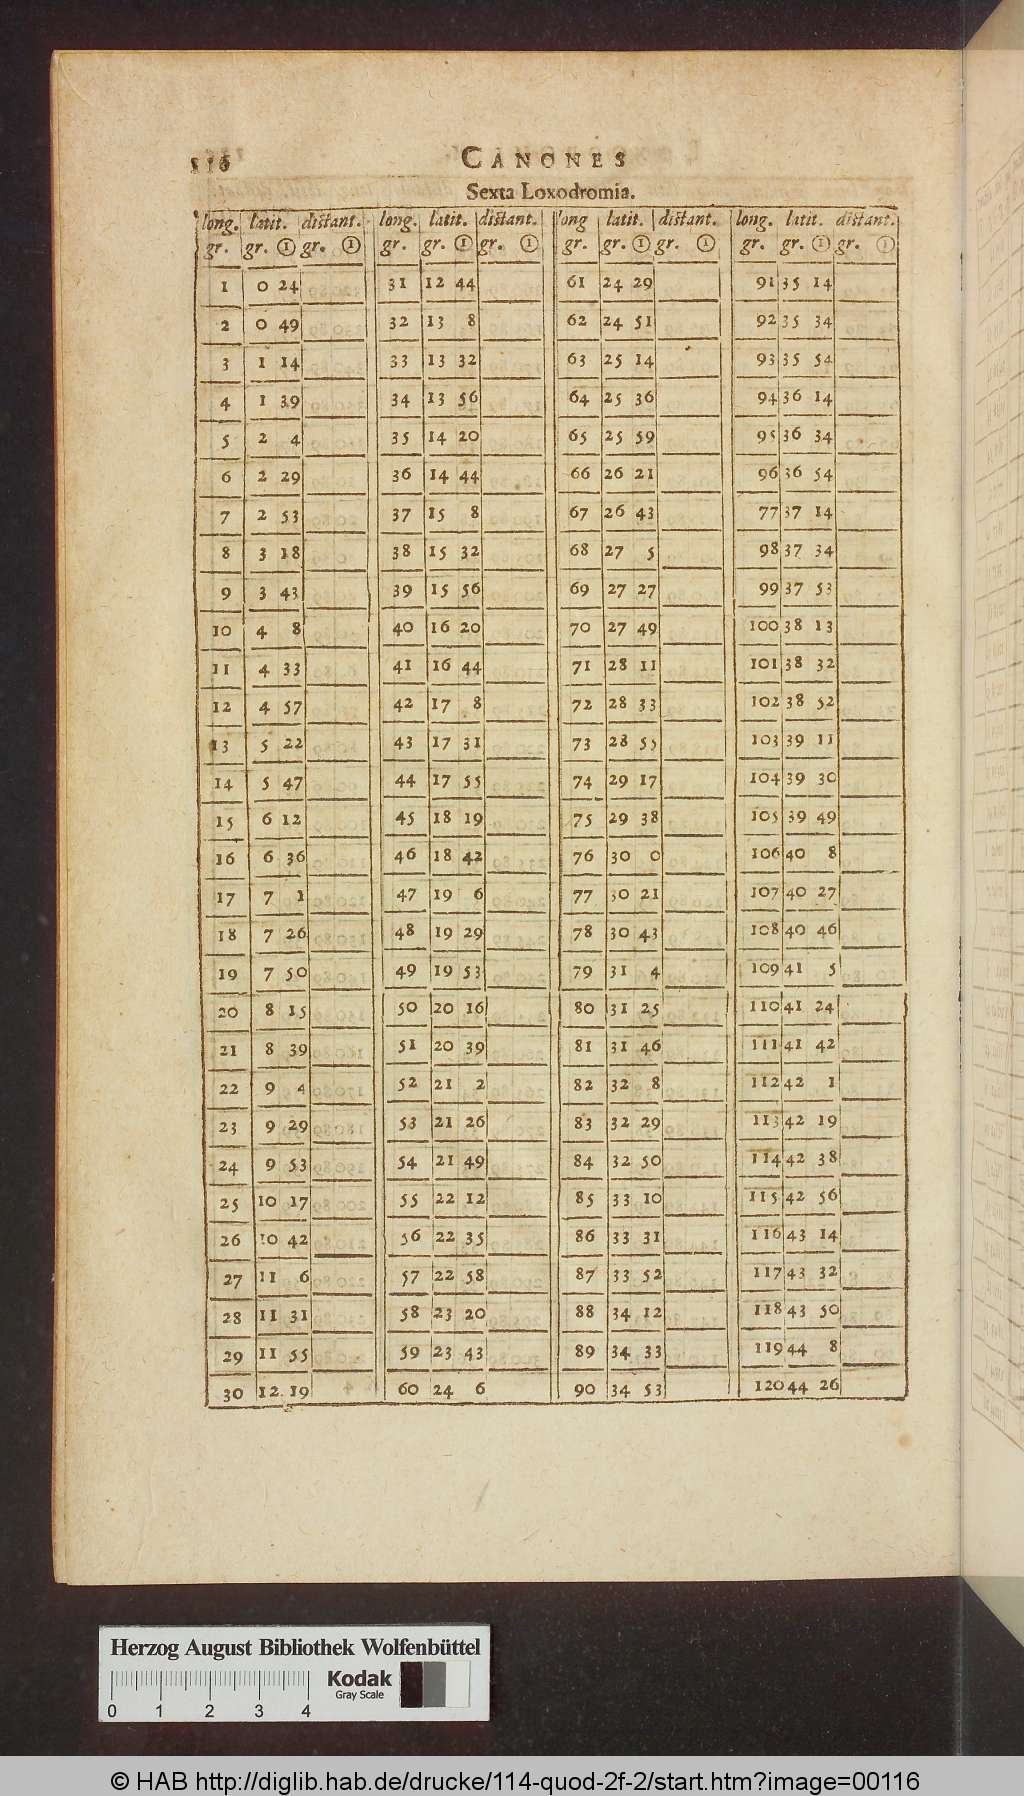 116 CANONES
Sexta Loxodromia.
long. latit. distant. long. latit. distant. long latit. distant. long. latit. distant.
gr. gr. ① gr. ① gr. gr. ① gr. ① gr. gr. ① gr. ① gr. gr. ① gr. ①
1 0 24 31 12 44 61 24 29 91 35 14
2 0 49 32 13 8 62 24 51 92 35 34
3 1 14 33 13 32 63 25 14 93 35 54
4 1 39 34 13 56 64 25 36 94 36 14
5 2 4 35 14 20 65 25 59 95 36 34
6 2 29 36 14 44 66 26 21 96 36 54
7 2 53 37 15 8 67 26 43 77 37 14
8 3 18 38 15 32 68 27 5 98 37 34
9 3 43 39 15 56 69 27 27 99 37 53
10 4 8 40 16 20 70 27 49 100 38 13
11 4 33 41 16 44 71 28 11 101 38 32
12 4 57 42 17 8 72 28 33 102 38 52
13 5 22 43 17 31 73 28 55 103 39 11
14 5 47 44 17 55 74 29 17 104 39 30
15 6 12 45 18 19 75 29 38 105 39 49
16 6 36 46 18 42 76 30 0 106 40 8
17 7 1 47 19 6 77 30 21 107 40 27
18 7 26 48 19 29 78 30 43 108 40 46
19 7 50 49 19 53 79 31 4 109 41 5
20 8 15 50 20 16 80 31 25 110 41 24
21 8 39 51 20 39 81 31 46 111 41 42
22 9 4 52 21 2 82 32 8 112 42 1
23 9 29 53 21 26 83 32 29 113 42 19
24 9 53 54 21 49 84 32 50 114 42 38
25 10 17 55 22 12 85 33 10 115 42 56
26 10 42 56 22 35 86 33 31 116 43 14
27 11 6 57 22 58 87 33 52 117 43 32
28 11 31 58 23 20 88 34 12 118 43 50
29 11 55 59 23 43 89 34 33 119 44 8
30 12 19 60 24 6 90 34 53 120 44 26
Herzog August Bibliothek Wolfenbüttel
Kodak
Gray Scale
0 1 2 3 4
© HAB http://diglib.hab.de/drucke/114-quod-2f-2/start.htm?image=00116